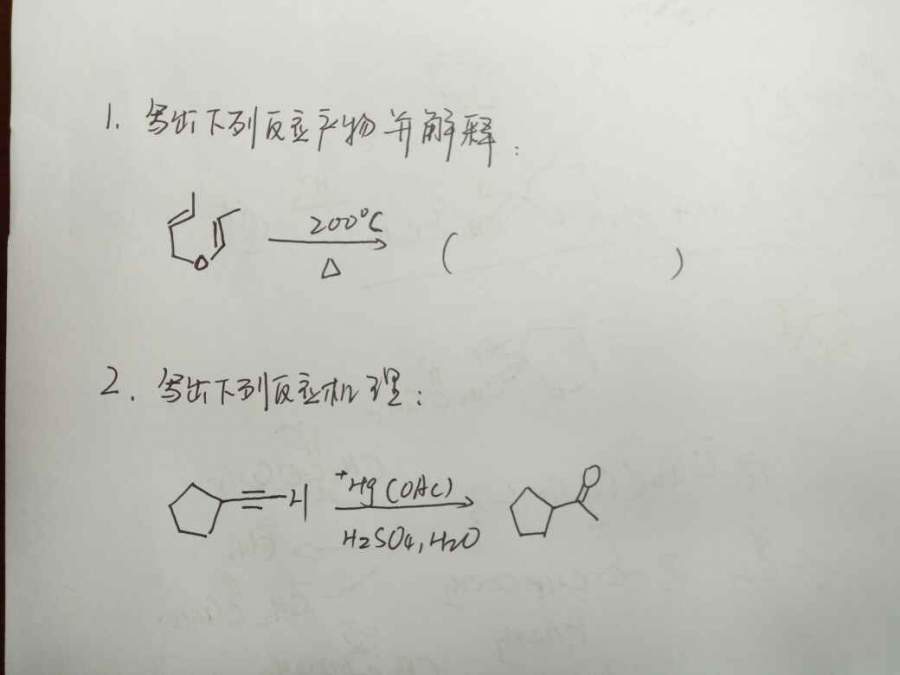 1. 写出下列反应产物并解释:
O
200°C
△
( )
2. 写出下列反应机理:
≡-H
+Hg(OAc)
H2SO4, H2O
O